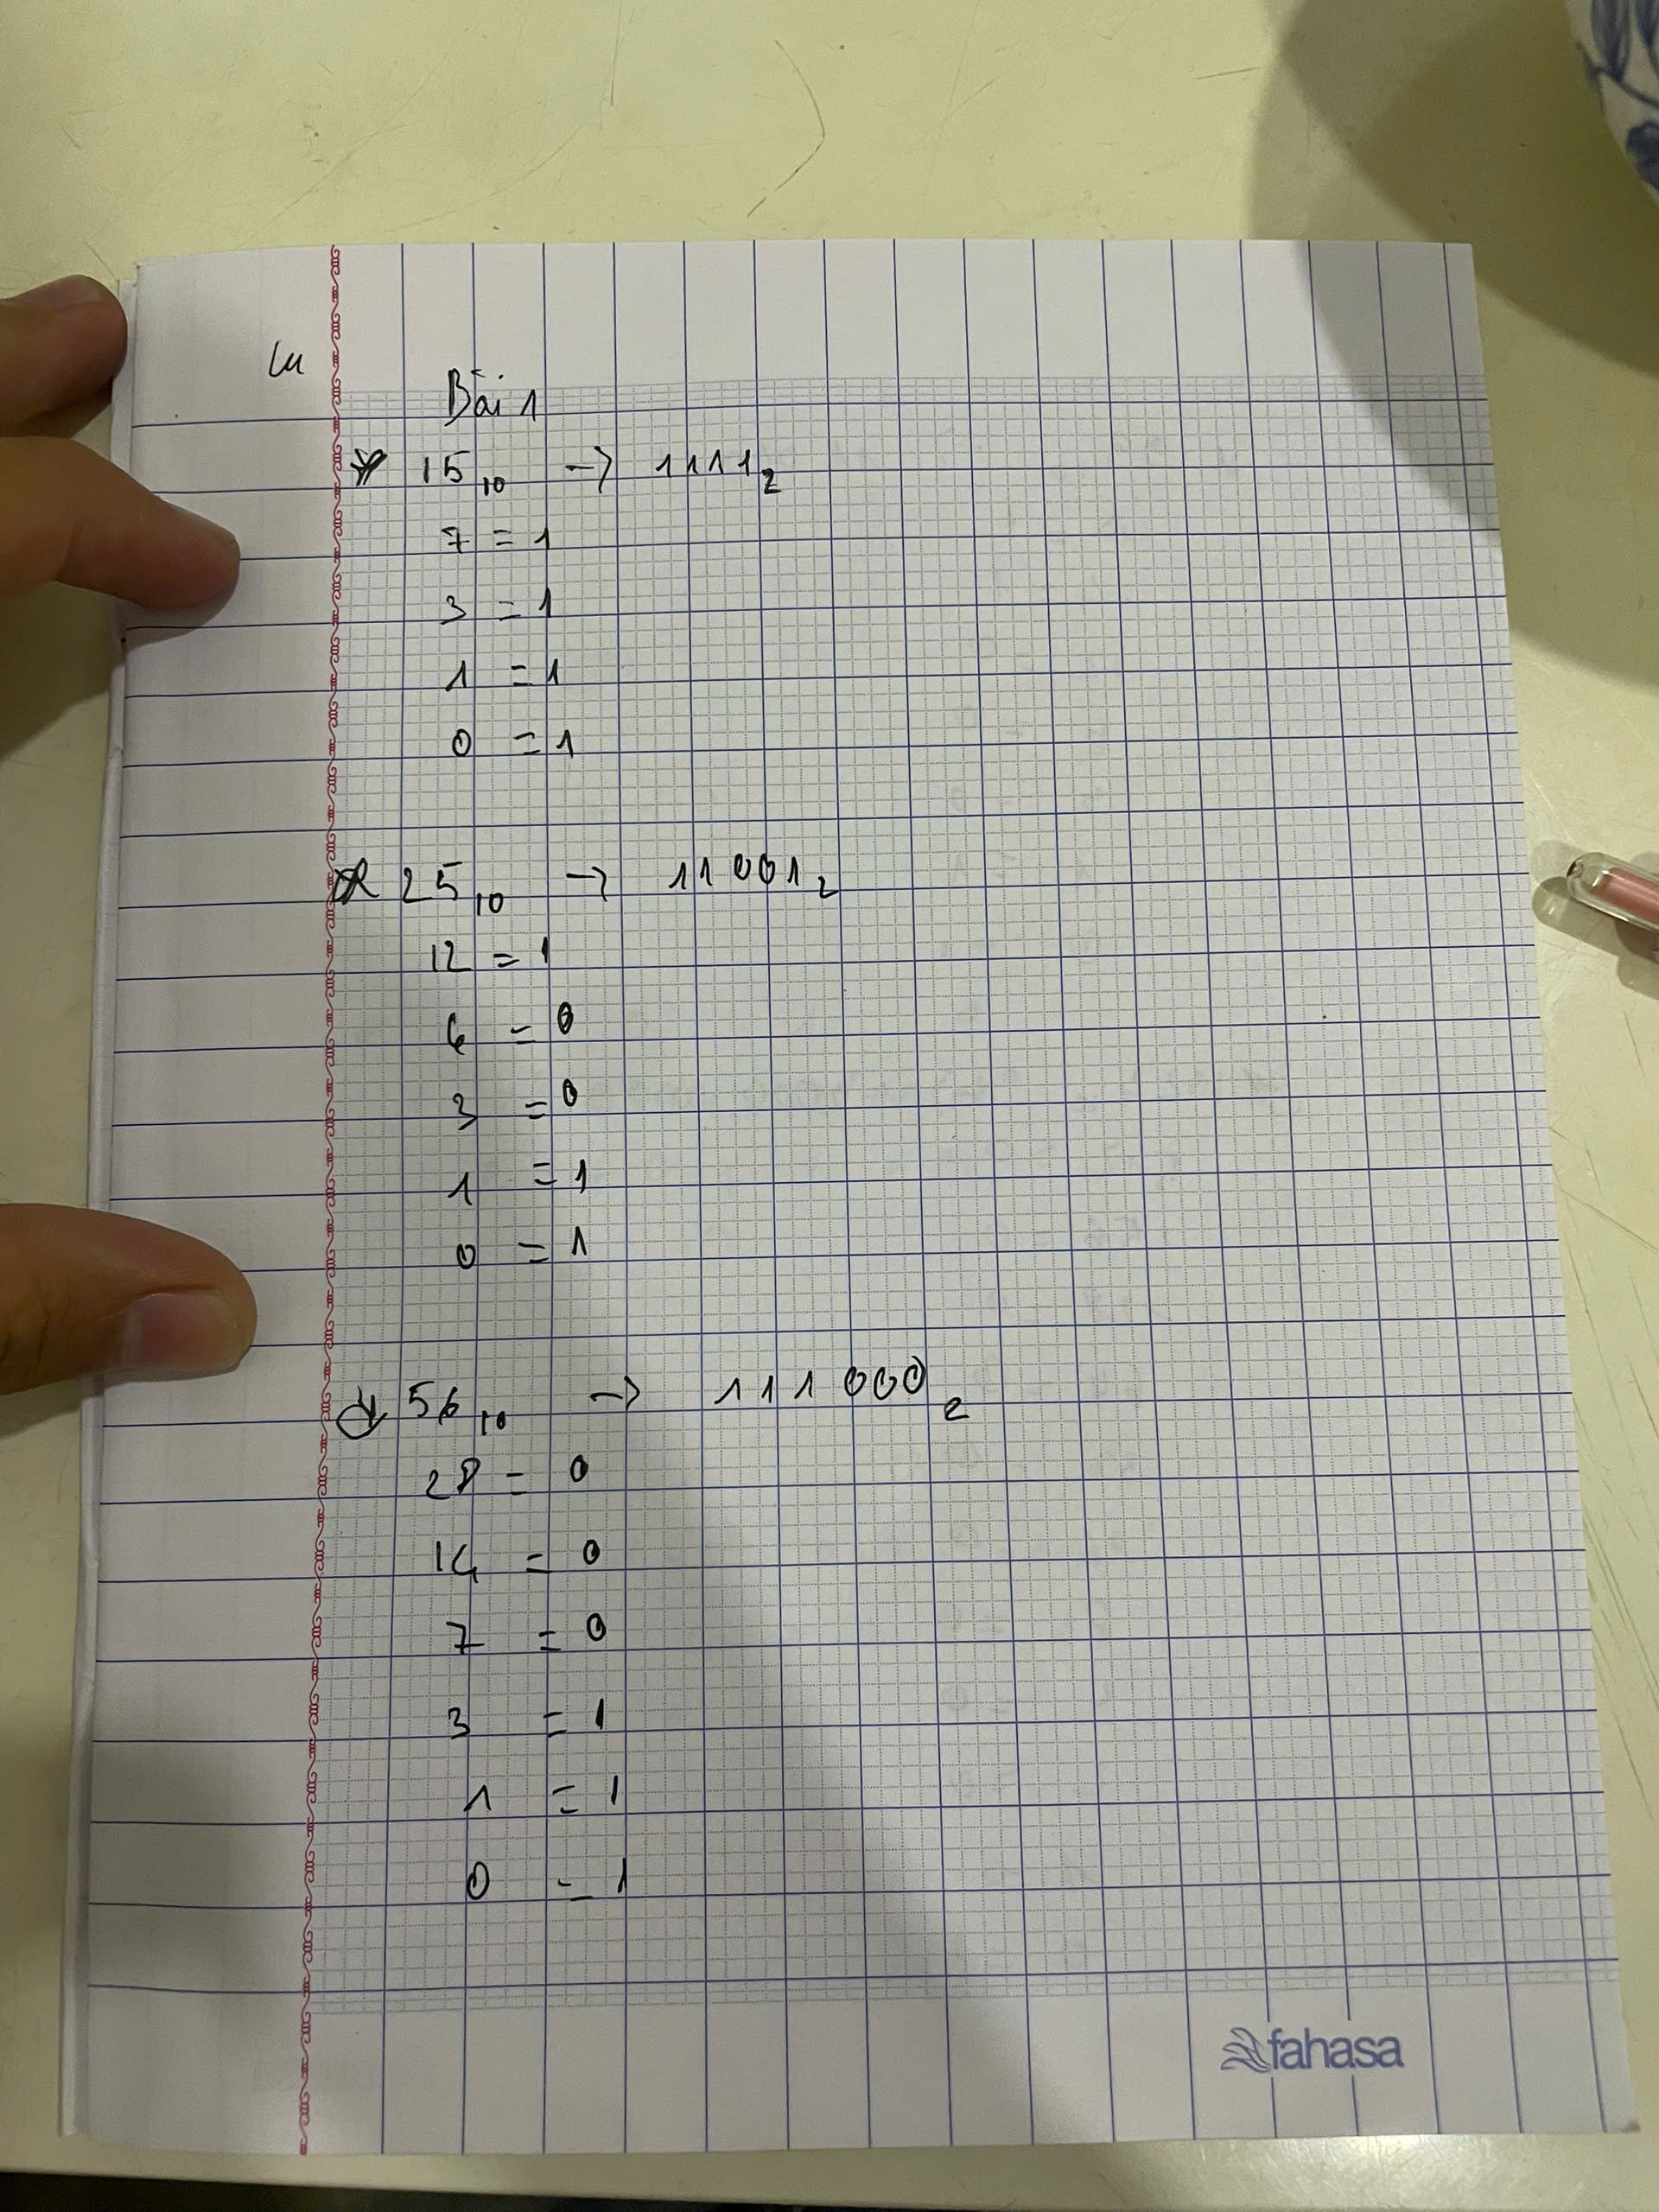 Bài 1
15₁₀ → 1111₂
7 = 1
3 = 1
1 = 1
0 = 1
25₁₀ → 11001₂
12 = 1
6 = 0
3 = 0
1 = 1
0 = 1
56₁₀ → 111000₂
28 = 0
14 = 0
7 = 0
3 = 1
1 = 1
0 = 1
fahasa